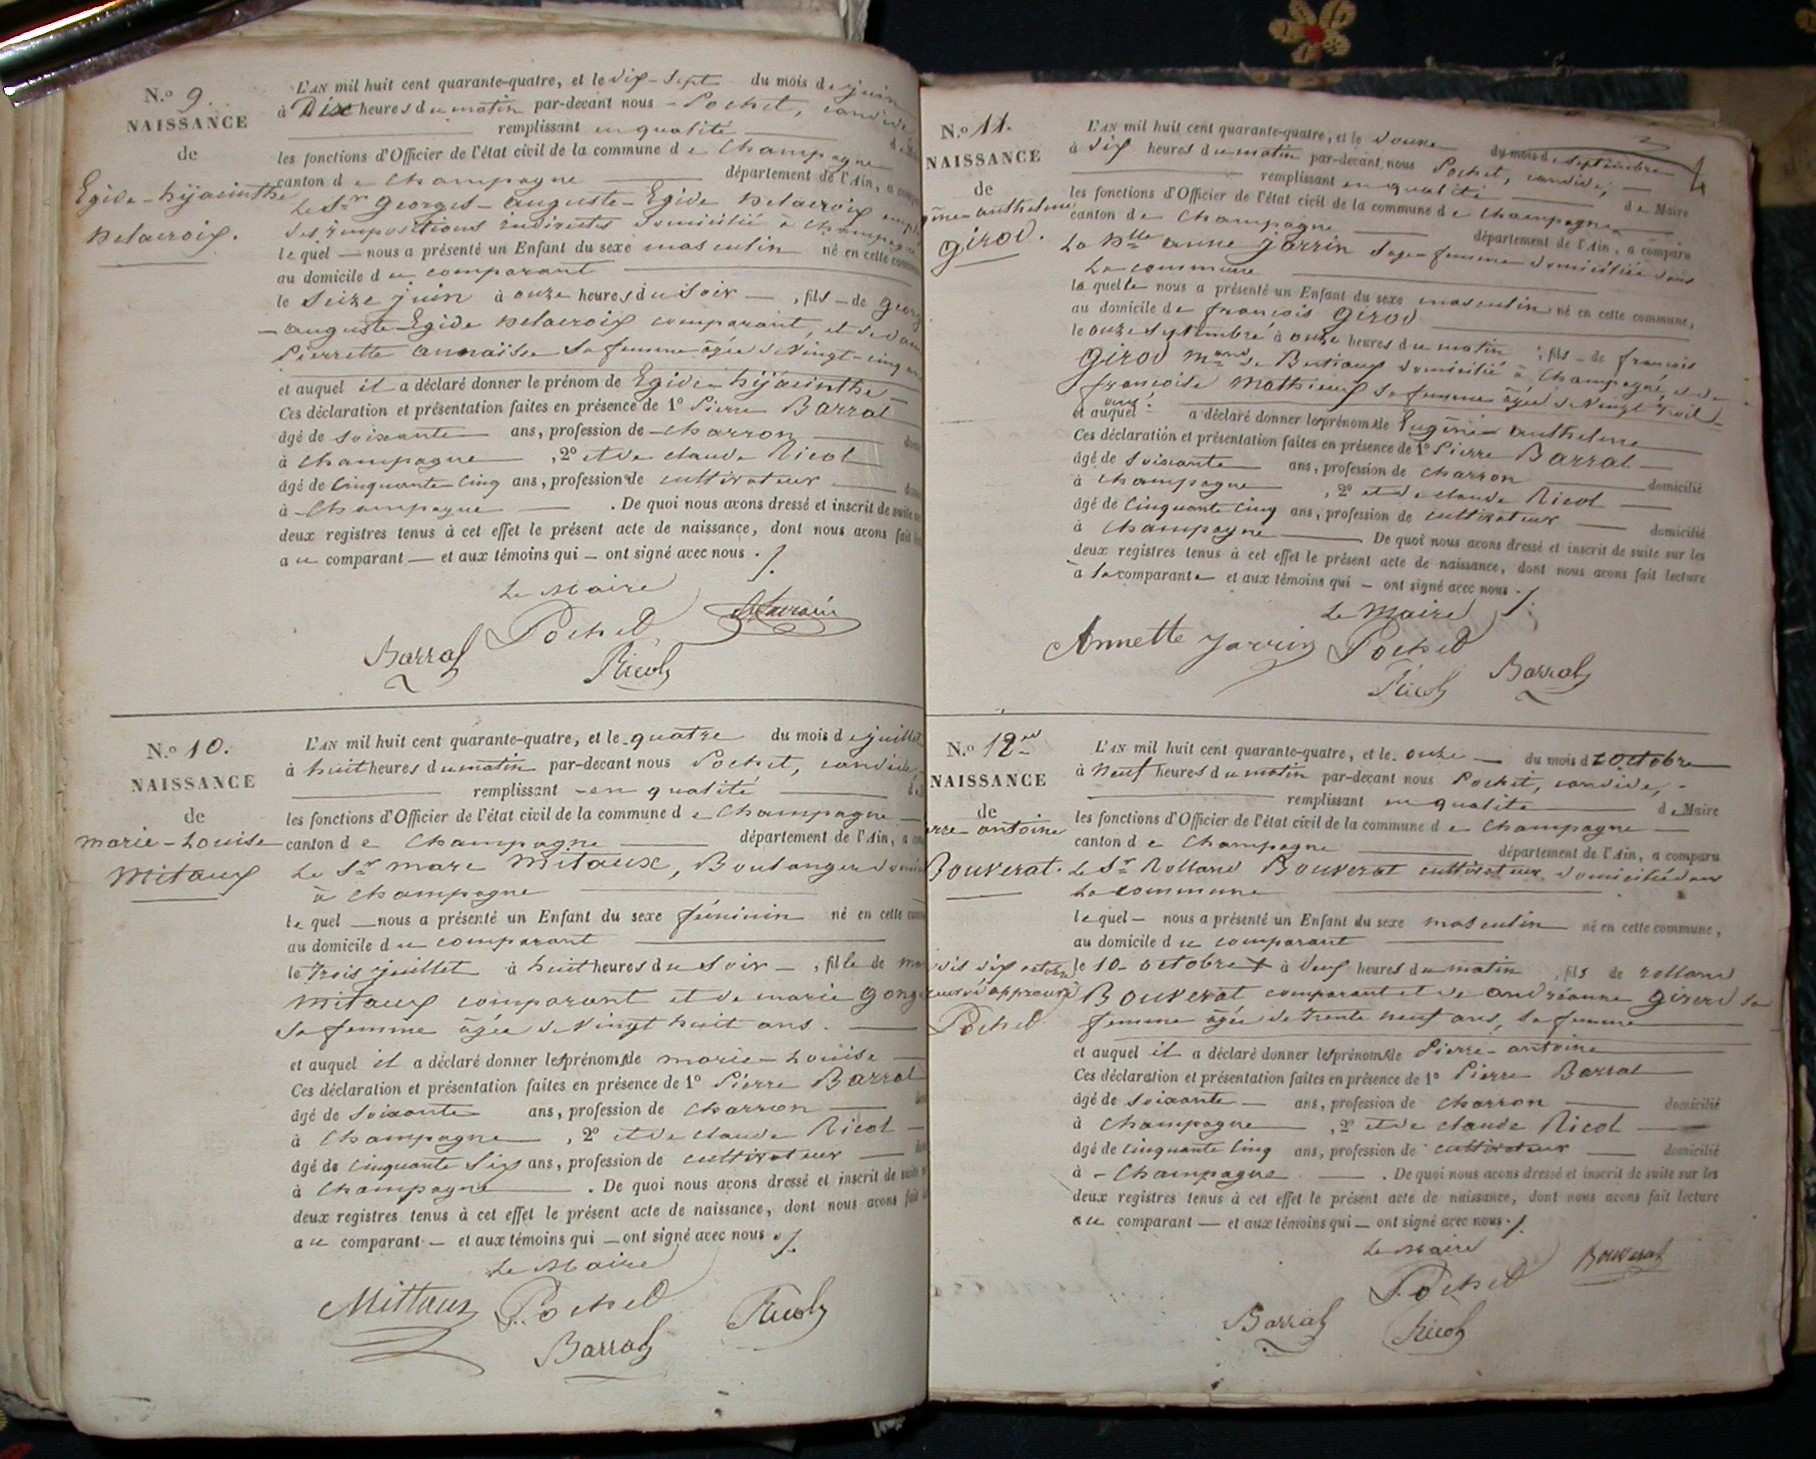 N.º 9.
NAISSANCE
de
Egide-hyacinthe
Delacroix.
L'AN mil huit cent quarante-quatre, et le dix-sept du mois de juin
à Dix heures du matin par-devant nous Pochet, candide,
remplissant en qualité
les fonctions d'Officier de l'état civil de la commune de Champagne
canton de Champagne département de l'Ain, a
Le Sr georges-auguste-Egide Delacroix
des impositions indirectes domicilié à Champagne
lequel nous a présenté un Enfant du sexe masculin né en cette
au domicile du comparant
le Seize juin à onze heures du Soir, fils de
auguste-Egide Delacroix comparant, et de
Pierrette annaisse Sa femme âgée de Vingt-cinq
et auquel il a déclaré donner le prénom de Egide hyacinthe
Ces déclaration et présentation faites en présence de 1º Pierre Barral
âgé de soixante ans, profession de charron
à Champagne, 2º et de claude Ricol
âgé de Cinquante Cinq ans, profession de cultivateur
à Champagne. De quoi nous avons dressé et inscrit de suite
deux registres tenus à cet effet le présent acte de naissance, dont nous avons fait
au comparant et aux témoins qui ont signé avec nous ./.
Le Maire
Pochet
Delacroix
Barral
Ricol
N.º 10.
NAISSANCE
de
marie-Louise
Mitaux
L'AN mil huit cent quarante-quatre, et le quatre du mois de juillet
à huit heures du matin par-devant nous Pochet, candide,
remplissant en qualité
les fonctions d'Officier de l'état civil de la commune de Champagne
canton de Champagne département de l'Ain, a
Le Sr marc Mitaux, Boulanger
à Champagne
lequel nous a présenté un Enfant du sexe féminin né en cette
au domicile du comparant
le trois juillet à huit heures du Soir, fille de
Mitaux comparant et de marie
Sa femme âgée de Vingt huit ans.
et auquel il a déclaré donner les prénoms de marie-Louise
Ces déclaration et présentation faites en présence de 1º Pierre Barral
âgé de Soixante ans, profession de Charron
à Champagne, 2º et de claude Ricol
âgé de cinquante Six ans, profession de cultivateur
à Champagne. De quoi nous avons dressé et inscrit de suite
deux registres tenus à cet effet le présent acte de naissance, dont nous avons fait
au comparant et aux témoins qui ont signé avec nous ./.
Le Maire
Mittaux
Pochet
Ricol
Barral
N.º 11.
NAISSANCE
de
anthelme
girod.
L'AN mil huit cent quarante-quatre, et le douze du mois de septembre
à dix heures du matin par-devant nous Pochet, candide,
remplissant en qualité de Maire
les fonctions d'Officier de l'état civil de la commune de Champagne
canton de Champagne département de l'Ain, a comparu
La Dlle anne jarrin Sage-femme domiciliée dans
La commune
laquelle nous a présenté un Enfant du sexe masculin né en cette commune,
au domicile de françois girod
le onze septembre à onze heures du matin, fils de françois
girod Md de Bestiaux domicilié à Champagne, et de
françoise Mathieux Sa femme âgée de Vingt trois
ans.
et auquel a déclaré donner les prénoms de Eugène anthelme
Ces déclaration et présentation faites en présence de 1º Pierre Barral
âgé de Soixante ans, profession de charron domicilié
à Champagne, 2º et de claude Ricol
âgé de Cinquante Cinq ans, profession de cultivateur domicilié
à Champagne De quoi nous avons dressé et inscrit de suite sur les
deux registres tenus à cet effet le présent acte de naissance, dont nous avons fait lecture
à la comparante et aux témoins qui ont signé avec nous ./.
Le Maire
Annette Jarrin
Pochet
Ricol
Barral
N.º 12
NAISSANCE
de
antoine
Bouverat.
L'AN mil huit cent quarante-quatre, et le onze du mois d'octobre
à Neuf heures du matin par-devant nous Pochet, candide,
remplissant en qualité de Maire
les fonctions d'Officier de l'état civil de la commune de Champagne
canton de Champagne département de l'Ain, a comparu
Le Sr Rolland Bouverat cultivateur domicilié dans
La commune
lequel nous a présenté un Enfant du sexe masculin né en cette commune,
au domicile du comparant
dix octobre
approuvé
Pochet
le 10 octobre à deux heures du matin, fils de rolland
Bouverat comparant et de andréanne girerd Sa
femme âgée de trente neuf ans, Sa femme
et auquel il a déclaré donner les prénoms de Pierre-antoine
Ces déclaration et présentation faites en présence de 1º Pierre Barral
âgé de Soixante ans, profession de charron domicilié
à Champagne, 2º et de claude Ricol
âgé de cinquante Cinq ans, profession de cultivateur domicilié
à Champagne. De quoi nous avons dressé et inscrit de suite sur les
deux registres tenus à cet effet le présent acte de naissance, dont nous avons fait lecture
au comparant et aux témoins qui ont signé avec nous ./.
Le Maire
Bouverat
Pochet
Barral
Ricol